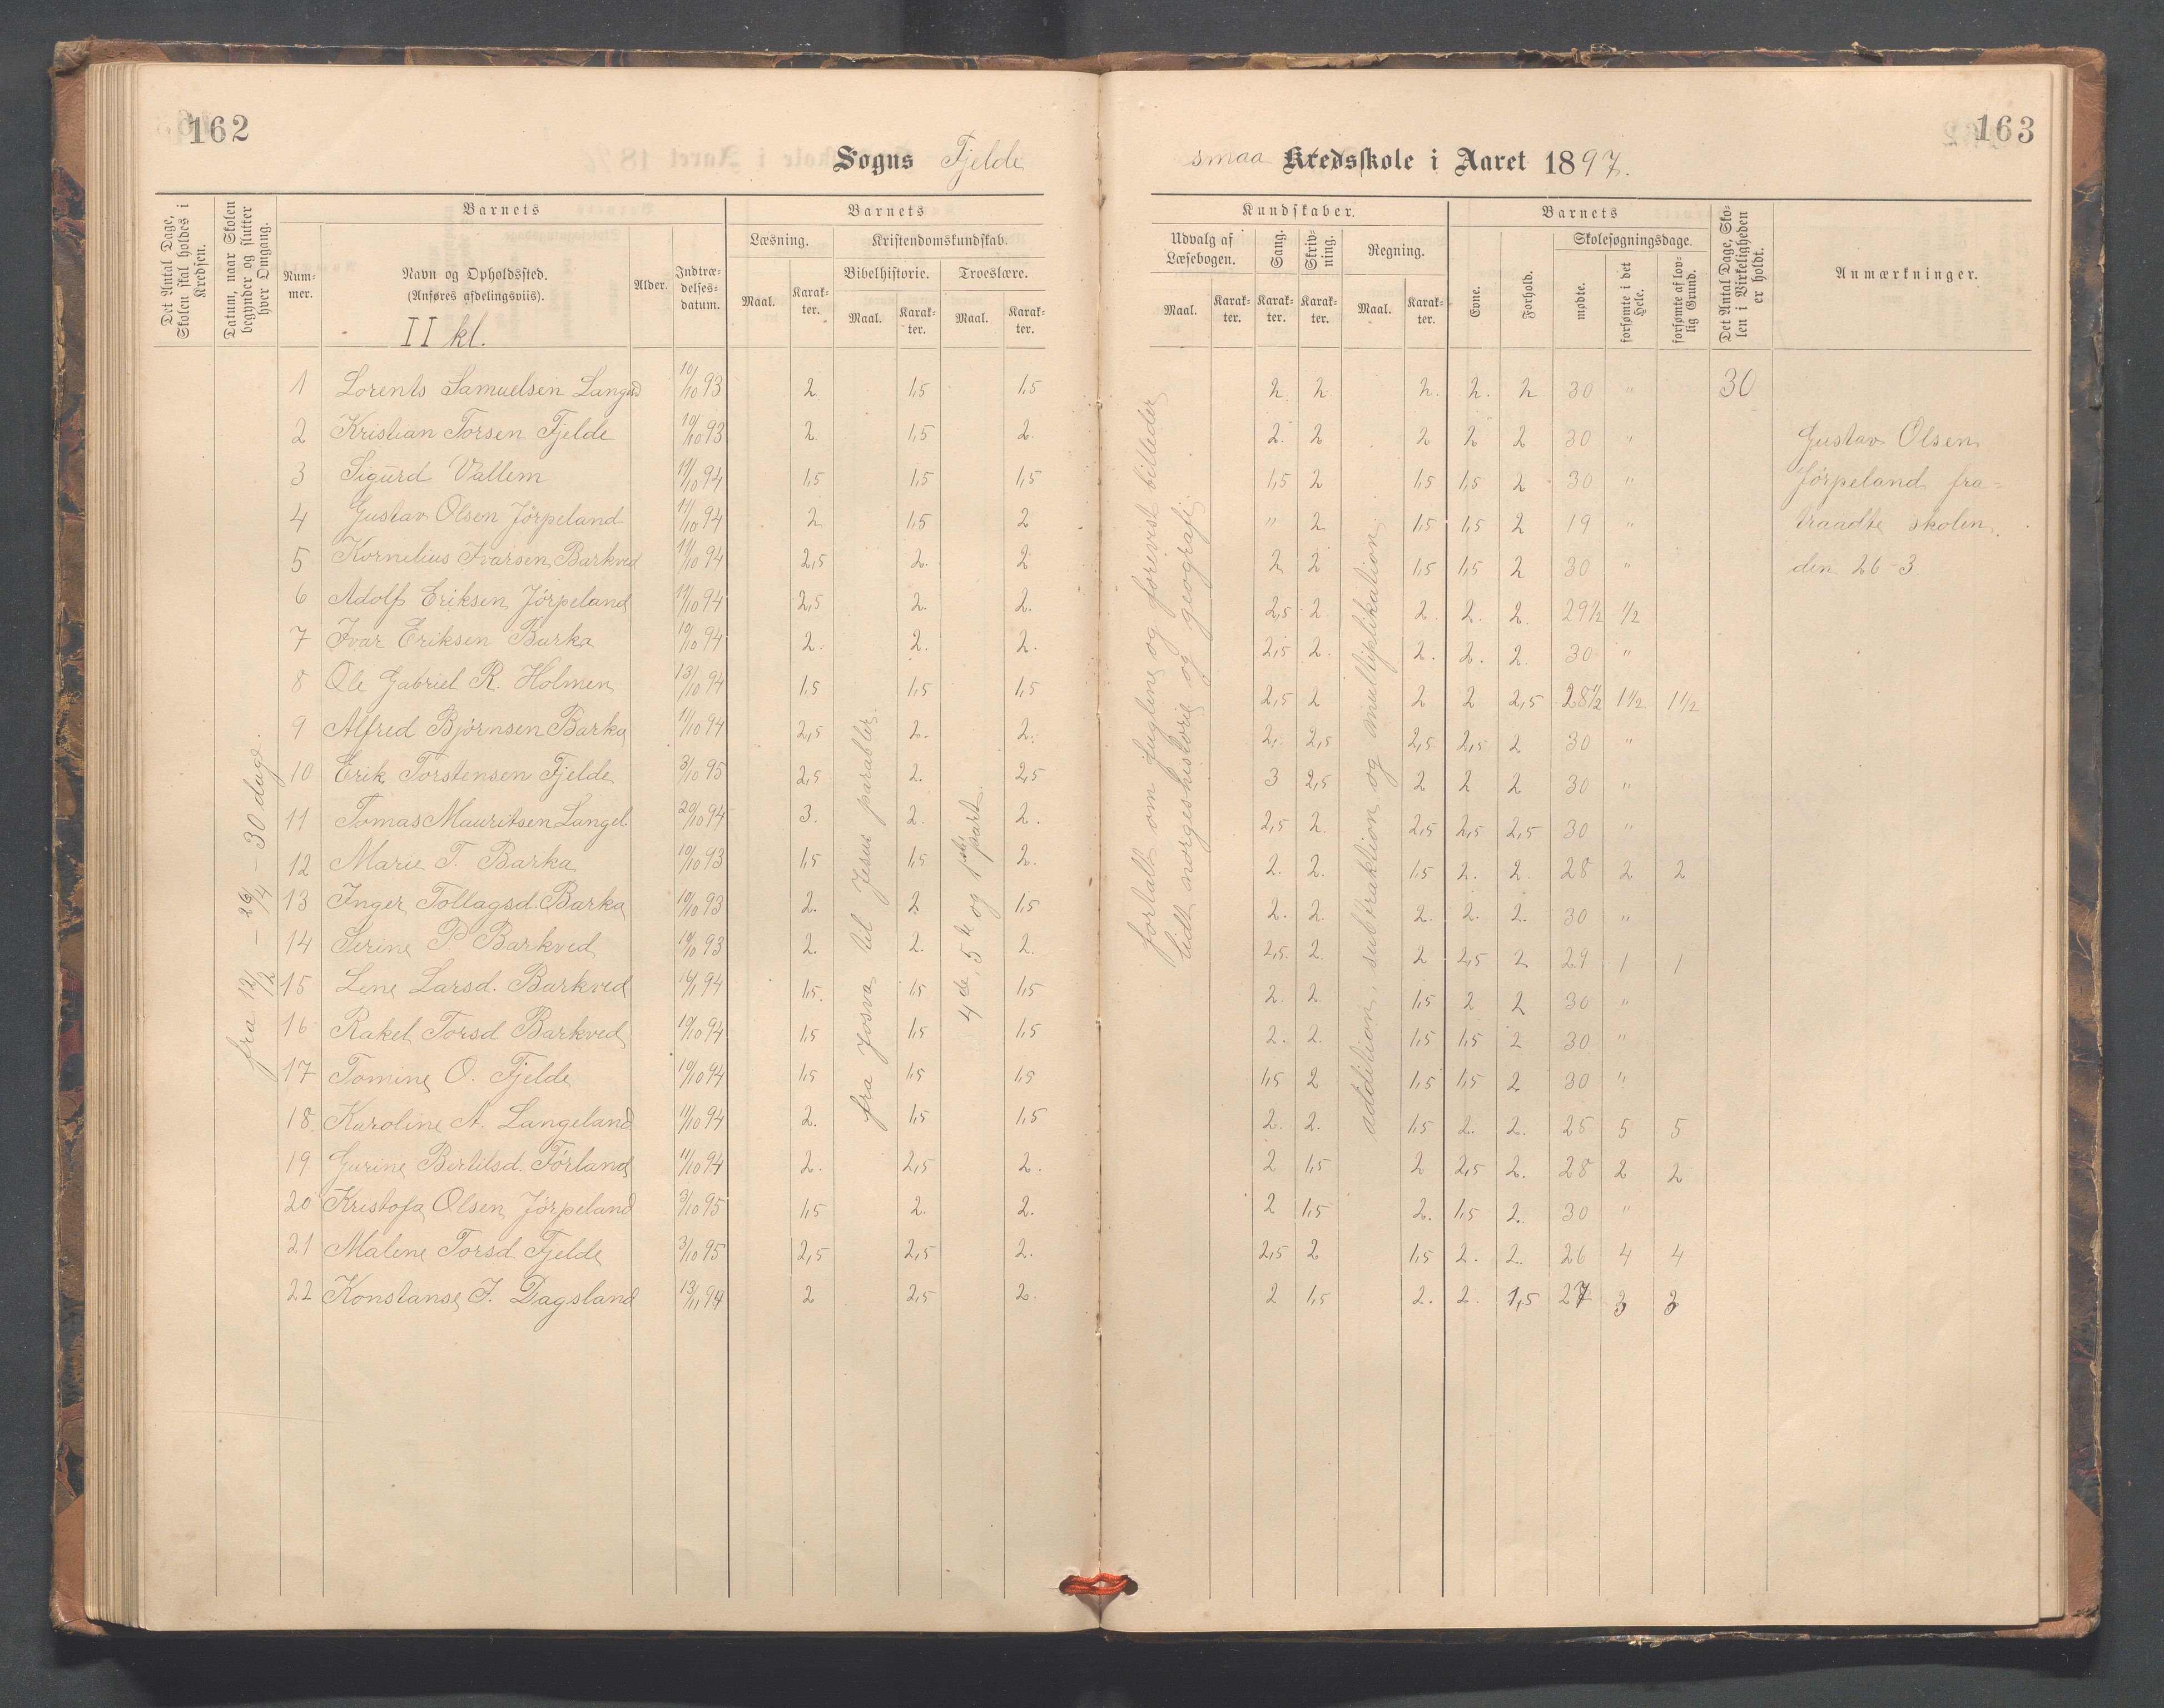 162
Sogns Fjelde
Det Antal Dage, Skolen skal holdes i Kredsen.
Datum, naar Skolen begynder og slutter hver Omgang.
Barnets
Barnets
Num-mer.
Navn og Opholdssted.
(Anføres afdelingsviis).
II kl.
Alder.
Indtræ-delses-datum.
Læsning.
Kristendomskundskab.
Bibelhistorie.
Troeslære.
Maal.
Karak-ter.
Maal.
Karak-ter.
Maal.
Karak-ter.
fra 12/2 – 26/4 – 30 dage.
fra Josva til Jesu parabler.
4de, 5te og 1ste part.
1 Lorents Samuelsen Langed 10/10 93 2 1,5 1,5
2 Kristian Torsen Fjelde 10/10 93 2. 1,5 2.
3 Sigurd Vallem 11/10 94 1,5 1,5 1,5
4 Gustav Olsen Jörpeland 11/10 94 2 1,5 2
5 Kornelius Ivarsen Barkved 11/10 94 2,5 2. 2
6 Adolf Eriksen Jörpeland 11/10 94 2,5 2. 2.
7 Ivar Eriksen Barka 10/10 94 2. 2. 2.
8 Ole Gabriel R. Holmen 13/10 94 1,5 1,5 1,5
9 Alfred Bjørnsen Barka 11/10 94 2,5 2. 2.
10 Erik Torstensen Fjelde 3/10 95 2,5 2. 2,5
11 Tomas Mauritsen Langel. 20/10 94 3. 2. 2.
12 Marie T. Barka 10/10 93 1,5 1,5 2.
13 Inger Tollagsd. Barka 10/10 93 2. 2 1,5
14 Serine P Barkved 10/10 93 2. 2. 2.
15 Lene Larsd. Barkved 94 1,5. 1,5 1,5
16 Rakel Torsd Barkved 10/10 94 1,5 1,5 1,5
17 Tomine O. Fjelde 10/10 94 1,5 1,5 1,5
18. Karoline A. Langeland 11/10 94 2. 1,5 1,5
19 Gurine Bertilsd. Förland 11/10 94 2. 2,5 2.
20 Kristofa Olsen Jörpeland 3/10 95 1,5 2. 2.
21 Malene Torsd. Fjelde 3/10 95 2,5 2,5 2.
22 Konstanse J. Dagsland 13/11 94 2 2,5 2.
163
smaa Kredsskole i Aaret 1897.
Kundskaber.
Barnets
Udvalg af Læsebogen.
Sang.
Skriv-ning.
Regning.
Evne.
Forhold.
Skolesøgningsdage.
mødte.
forsømte i det Hele.
forsømte af lov-lig Grund.
Det Antal Dage, Sko-len i Virkeligheden er holdt.
Anmærkninger.
Maal.
Karak-ter.
Karak-ter.
Karak-ter.
Maal.
Karak-ter.
fortalt om fuglene og forevist billeder
lidt norgeshistorie og geografi.
addition, subtraktion og multiplikation
2. 2. 2. 2. 2 30 " 30
2. 2 2 2 2 30 "
1,5 2 1,5 1,5 2 30 "
" 2 1,5 1,5 2 19 "
2 2 1,5 1,5 2 30 "
2,5 2 2 2. 2. 29 1/2 1/2
2,5 2. 2. 2. 2. 30 "
2,5 2 2 2 2,5 28 1/2 1 1/2 1 1/2
2. 2,5 2,5 2,5 2 30 "
3 2,5 2 2 2 30 "
2,5 2. 2,5 2,5 2,5 30 "
2. 2. 1,5 2. 2. 28 2 2
2. 2. 2. 2. 2. 30 "
2,5 2. 2 2,5 2 29 1 1
2. 2. 1,5 2 2 30 "
2. 2. 1,5 1,5 2 30 "
1,5 2 1,5 1,5 2 30 "
2. 2. 1,5 2. 2. 25 5 5
2 1,5 2 2,5 2. 28 2 2
2 1,5 2. 1,5 2. 30 "
2,5 2 1,5 2. 2. 26 4 4
2 1,5 2. 2. 1,5 27 3 3
Gustav Olsen
Jörpeland fra=
traadte skolen.
den 26-3